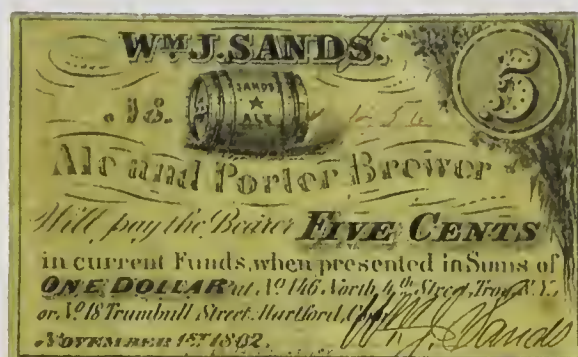 WM. J. SANDS.
5
SANDS
ALE
Ale and Porter Brewer
Will pay the Bearer FIVE CENTS
in current Funds, when presented in Sums of
ONE DOLLAR at No 146 North 4th Street, Troy, N.Y.,
or No 18 Trumbull Street, Hartford, Conn.
NOVEMBER 1ST 1862.
Wm J. Sands